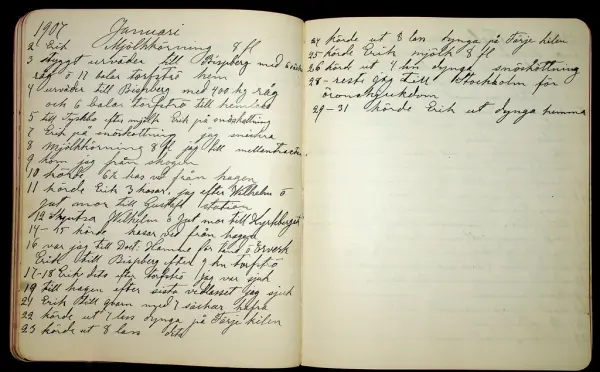 1907 Januari
2 Erik Mjölkkörning 8 fl
3 styggt urväder till Bispberg med 6 säckar
råg ö 17 balar torfströ hem
4 urväder till Bispberg med 400 kg råg
och 6 balar torfströ till hemlebd
5 till efter mjölk Erik på snöskottning
7 Erik på snöskottning jag
8 Mjölkkörning 8 fl jag till
9 kom jag från skogen
10 körde 6 h as ve från hagen
11 hörde Erik 3 hasar, jag efter Wilhelm ö
Jut mor till Gustafs station
12 skjutsa Wilhelm ö Jut mor till
14-15 körde hasar ved från hagen
16 var jag till Doct. för tand ö
Erik till Bispberg efter 9 torfströ
17-18 Erik dito efter torfströ jag var sjuk
19 till hagen efter sista vedlasset jag sjuk
21 Erik till qvarn med 7 säckar hafra
22 körde ut 7 lass dynga på Färje kilen
23 körde ut 8 lass dito
24 körde ut 8 lass dynga på Färje kilen
25 körde Erik mjölk 8 fl
26 körd ut 4 lm dynga, snöskottning
28 - reste jag till Stockholm för
öronsjukdom
29-31 körde Erik ut dynga hemma